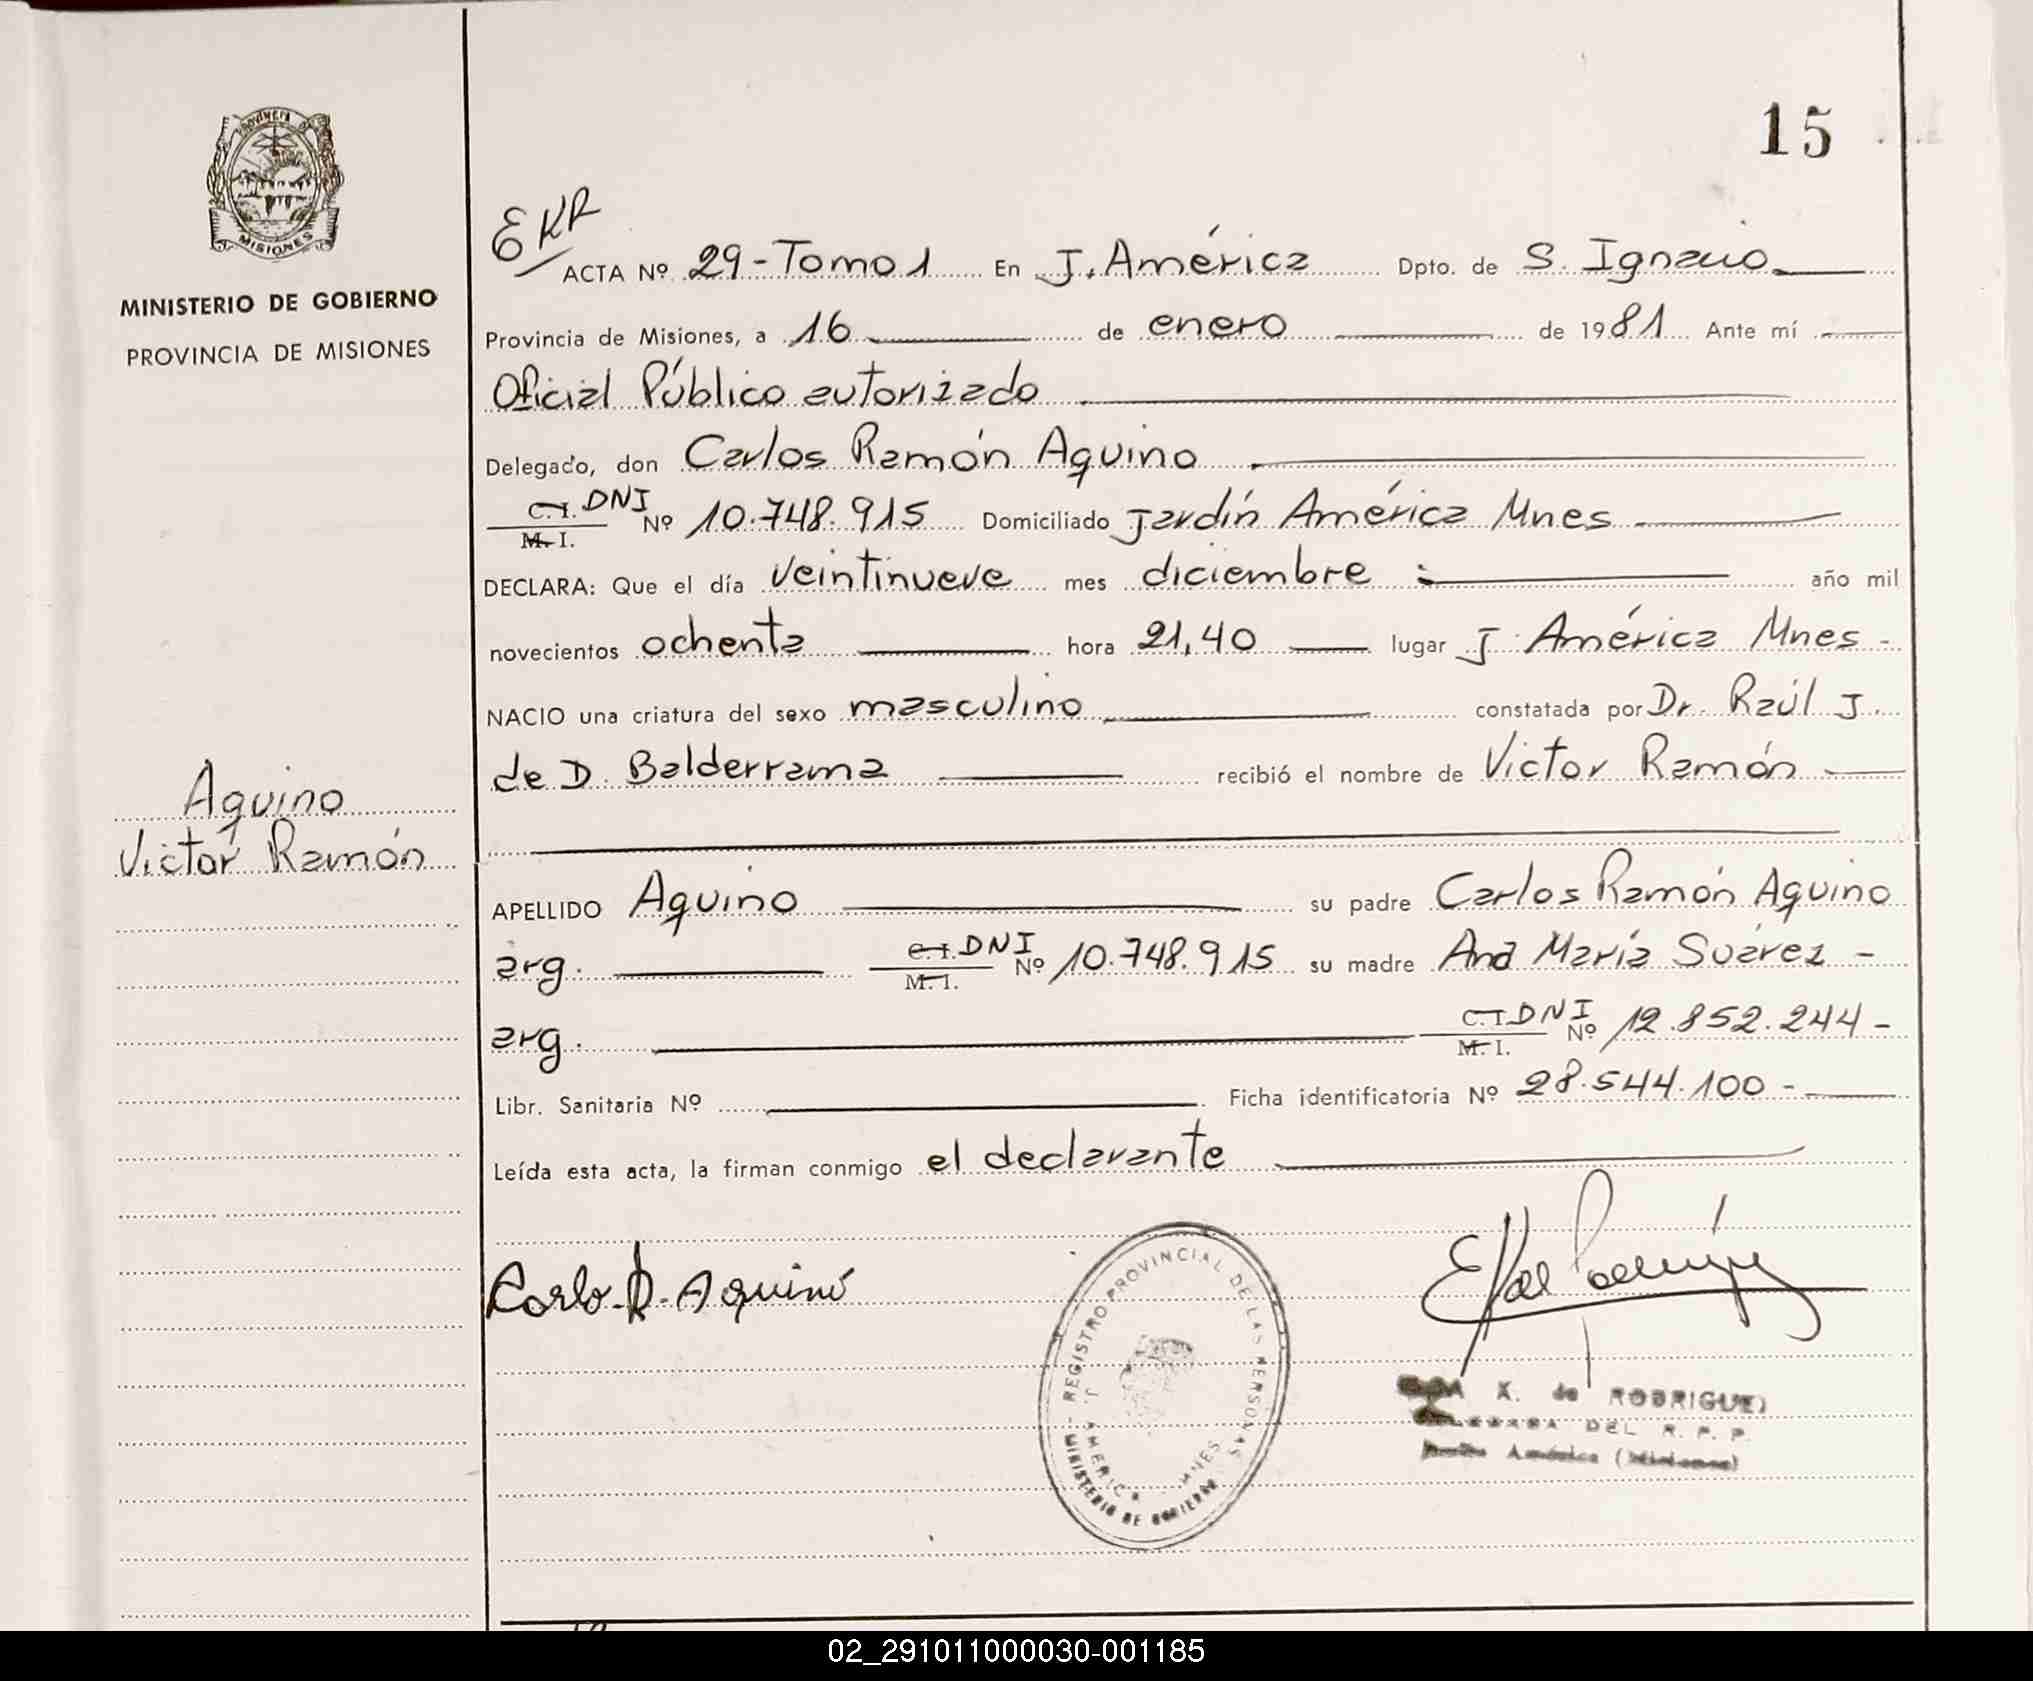 15
PROVINCIA DE
MISIONES
MINISTERIO DE GOBIERNO
PROVINCIA DE MISIONES
EKR
ACTA Nº 29-Tomo 1 En J. América Dpto. de S. Ignacio
Provincia de Misiones, a 16 de enero de 1981 Ante mí
Oficial Público autorizado
Delegado, don Carlos Ramón Aquino
C.I. DNI Nº 10.748.915 Domiciliado Jardín América Mnes
M. I.
DECLARA: Que el día veintinueve mes diciembre año mil
novecientos ochenta hora 21,40 lugar J. América Mnes -
NACIO una criatura del sexo masculino constatada por Dr. Raúl J.
de D. Balderrama recibió el nombre de Victor Ramón
Aquino
Victor Ramón
APELLIDO Aquino su padre Carlos Ramón Aquino
arg. C.I. DNI Nº 10.748.915 su madre Ana María Suárez -
M. I.
arg. C.I. DNI Nº 12.852.244 -
M. I.
Libr. Sanitaria Nº Ficha identificatoria Nº 28.544.100 -
Leída esta acta, la firman conmigo el declarante
Carlo R. Aquino
REGISTRO PROVINCIAL DE LAS PERSONAS
J. AMERICA MNES
MINISTERIO DE GOBIERNO
K. de RODRIGUEZ
DEL R. P. P.
América (Misiones)
02_291011000030-001185